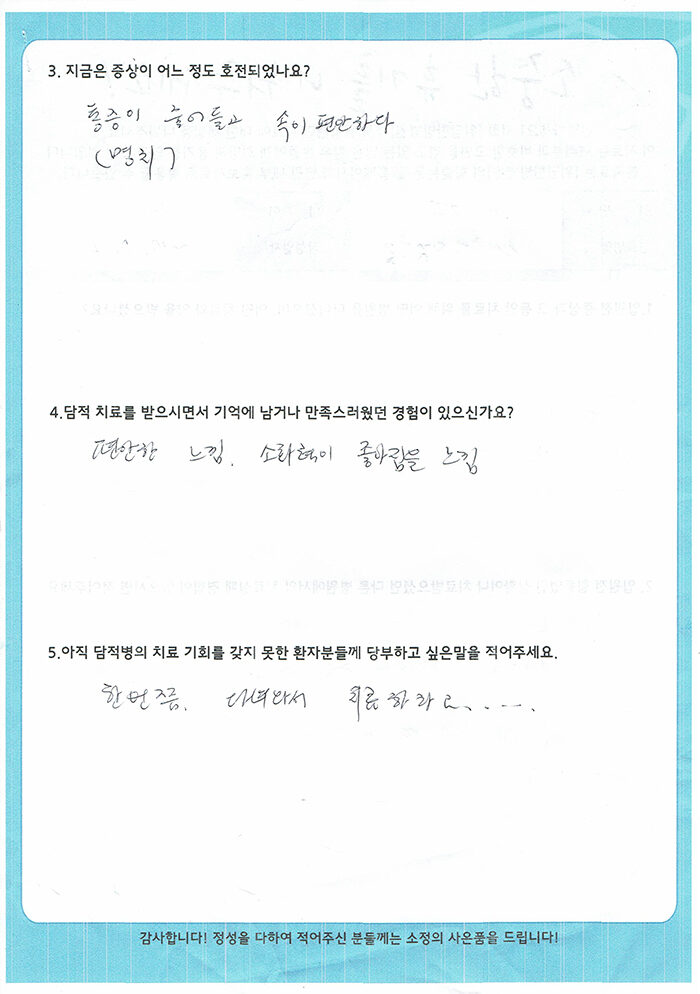 3. 지금은 증상이 어느 정도 호전되었나요?
통증이 줄어들고 속이 편안하다
(명치)
4.담적 치료를 받으시면서 기억에 남거나 만족스러웠던 경험이 있으신가요?
편안한 느낌. 소화력이 좋아짐을 느낌
5.아직 담적병의 치료 기회를 갖지 못한 환자분들께 당부하고 싶은말을 적어주세요.
한번쯤. 다녀와서 치료하라고.....
감사합니다! 정성을 다하여 적어주신 분들께는 소정의 사은품을 드립니다!